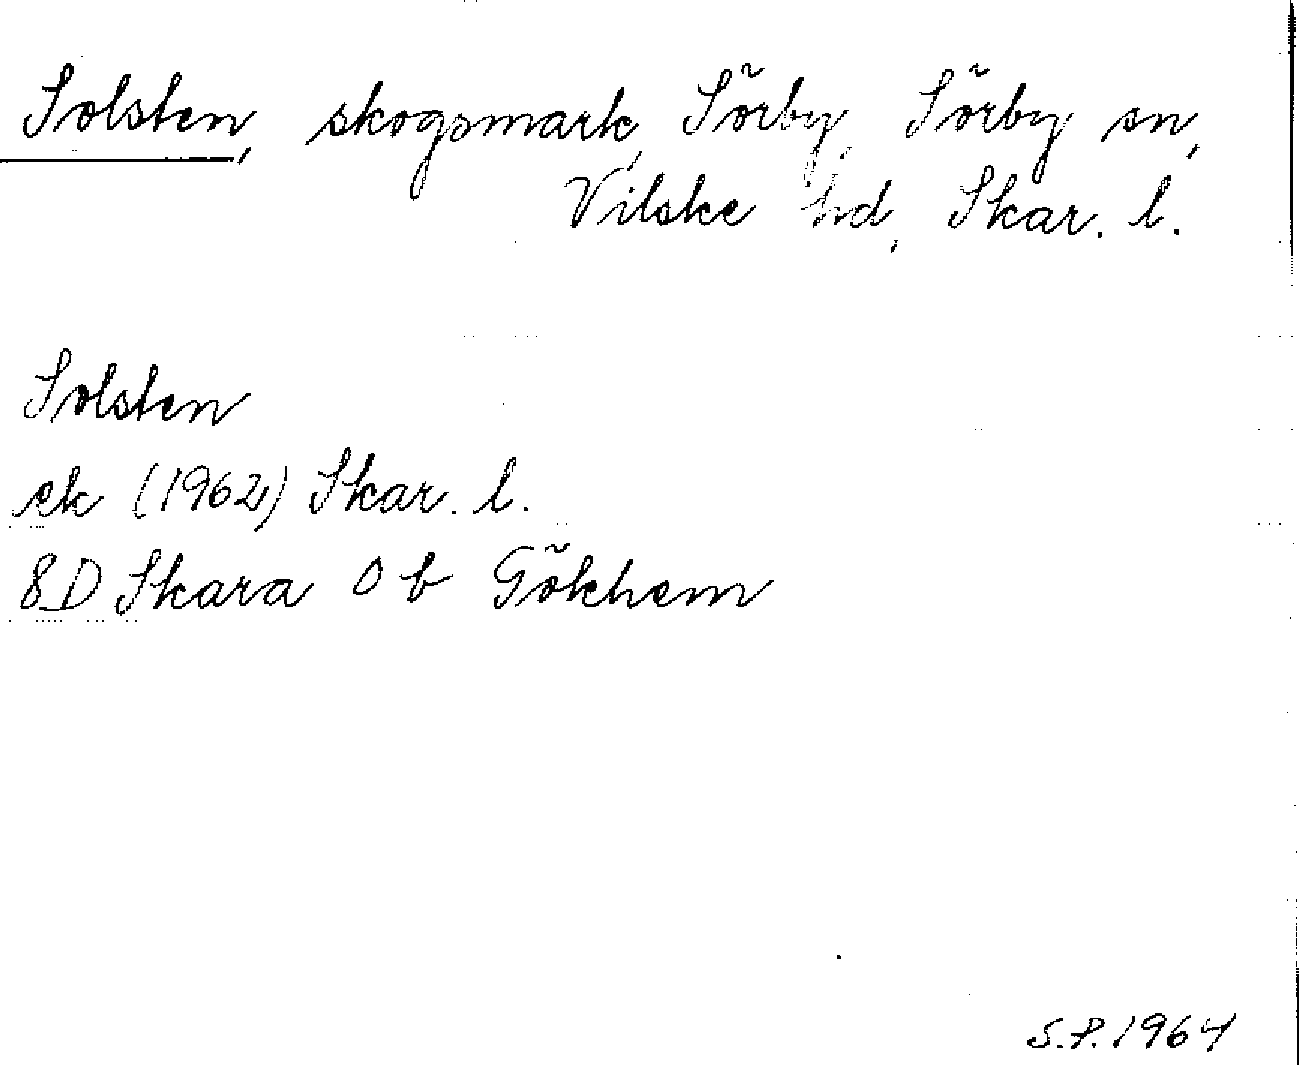 Solsten, skogsmark, Sörby, Sörby sn,
Vilske hd, Skar. l.
Solsten
ek (1962) Skar. l.
8D Skara 0 b Gökhem
S.P. 1964